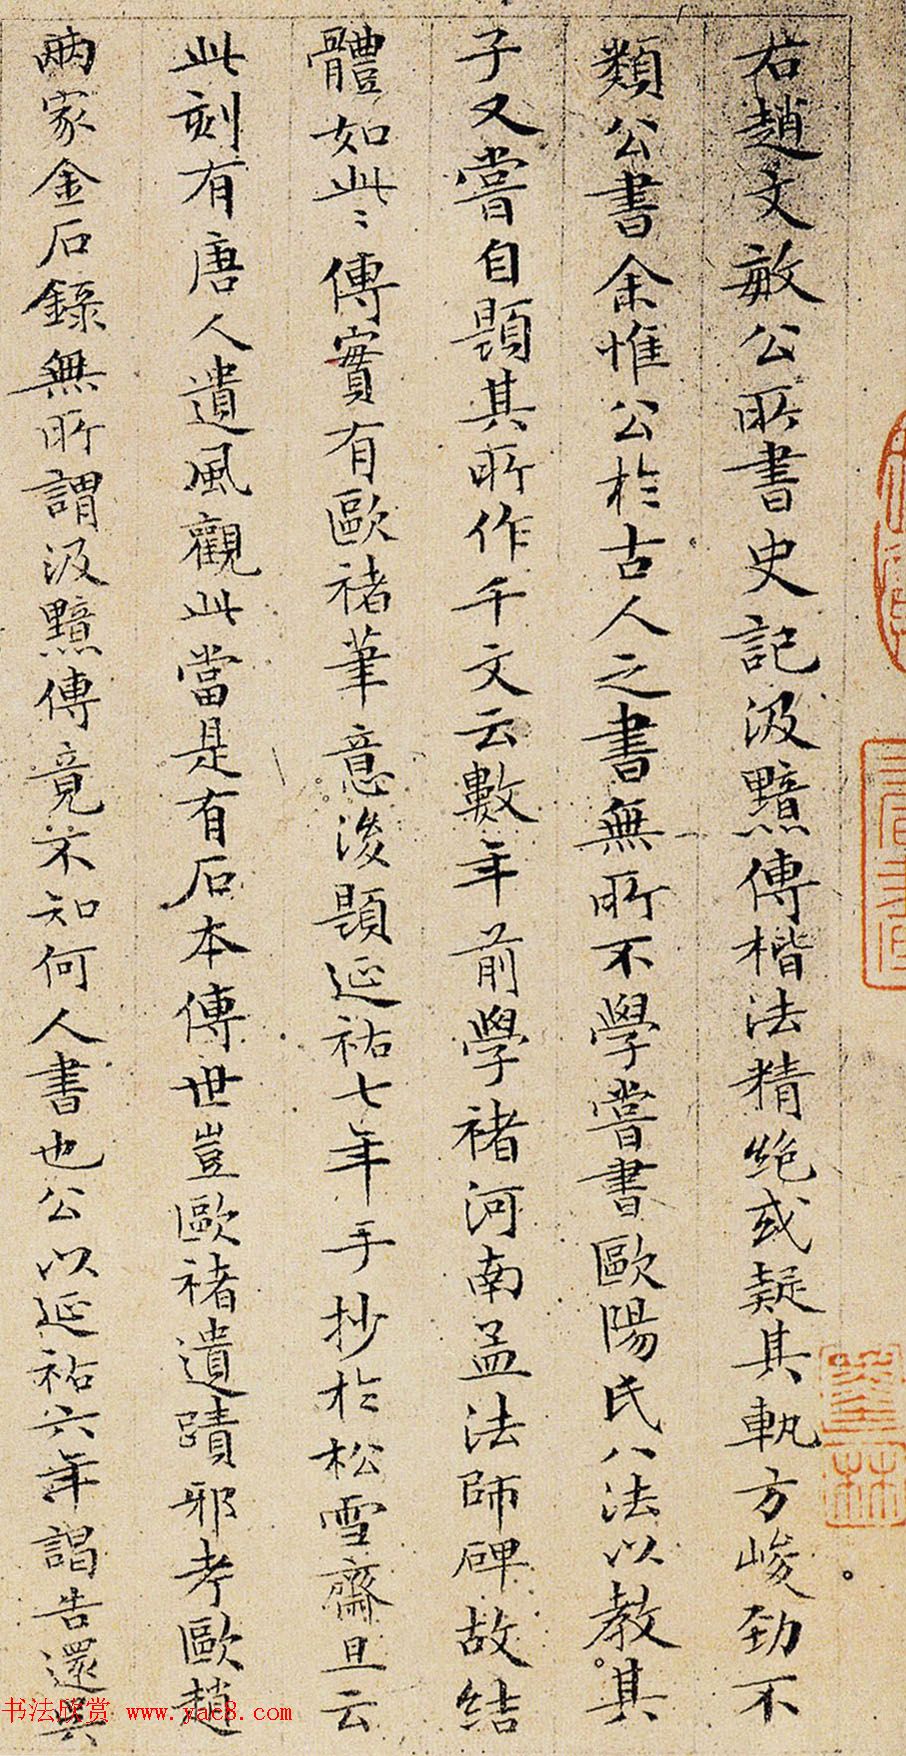 右趙文敏公所書史記汲黯傳楷法精絶或疑其軌方峻勁不
類公書余惟公於古人之書無所不學嘗書歐陽氏八法以教其
子又嘗自題其所作千文云數年前學褚河南孟法師碑故結
體如此此傳實有歐褚筆意後題延祐七年手抄於松雪齋且云
此刻有唐人遺風觀此當是有石本傳世豈歐褚遺蹟邪考歐趙
兩家金石錄無所謂汲黯傳竟不知何人書也公以延祐六年謁告還吳
书法欣赏 www.yac8.com